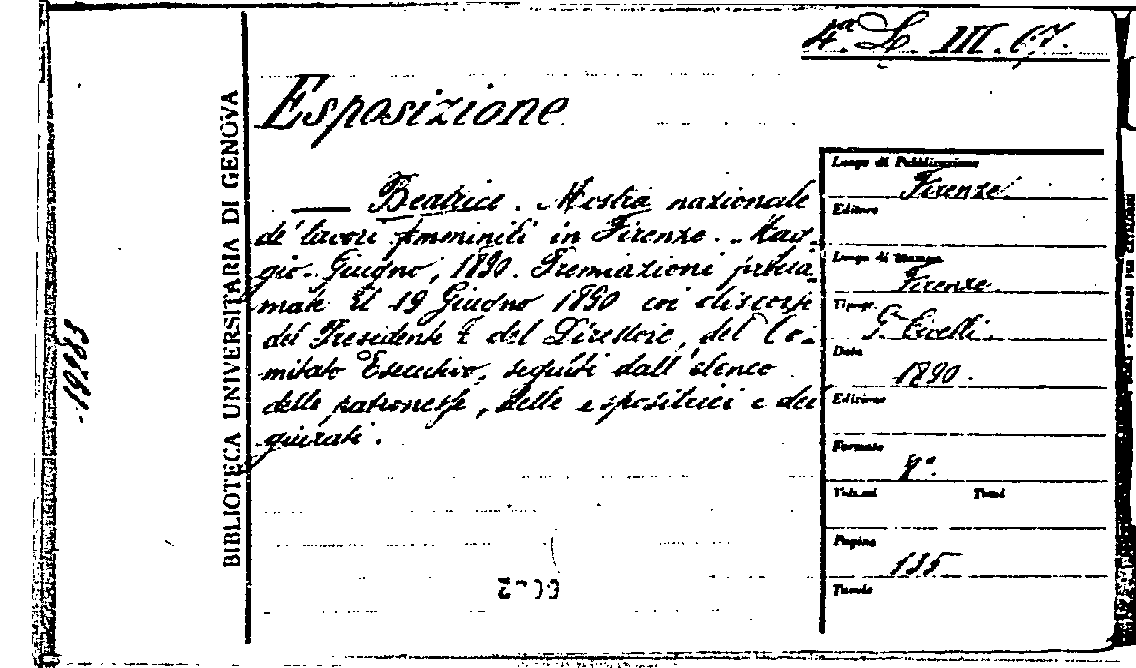 4ª. L. III. 67.
Esposizione
— Beatrice. Mostra nazionale
de' lavori femminili in Firenze. Mag-
gio. Giugno, 1890. Premiazioni procla-
mate il 19 Giugno 1890 coi discorsi
del Presidente e del Direttore, del Co-
mitato Esecutivo, seguiti dall'elenco
delle patronesse, delle espositrici e dei
giurati.
BIBLIOTECA UNIVERSITARIA DI GENOVA
Luogo di Pubblicazione
Firenze
Editore
Luogo di stampa
Firenze.
Tipogr.
G. Civelli.
Data
1890.
Edizione
Formato
8º.
Volumi Tomi
Pagine
135
Tavole